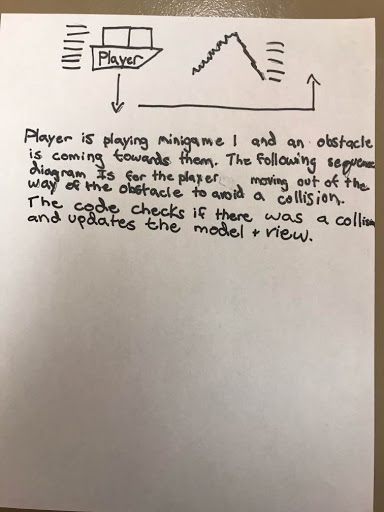 Player
Player is playing minigame 1 and an obstacle
is coming towards them. The following sequence
diagram is for the player moving out of the
way of the obstacle to avoid a collision.
The code checks if there was a collision
and updates the model + view.